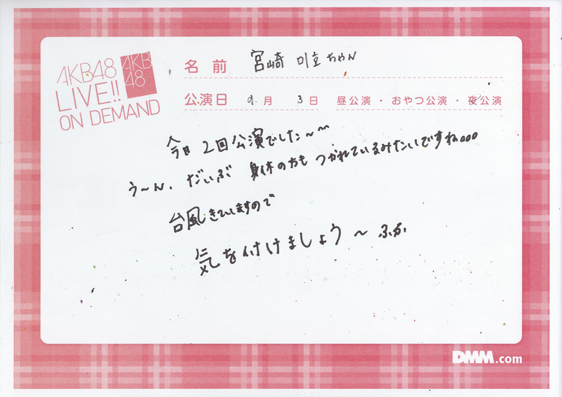 AKB48
LIVE!!
ON DEMAND
AKB
48
名前 宮崎 美穂ちゃん
公演日 9月 3日 昼公演・おやつ公演・夜公演
今日 2回公演でした〜〜
う〜ん、だいぶ 身体の方も つかれているみたいですね。。。
台風きていますので
気を付けましょう〜
DMM.com